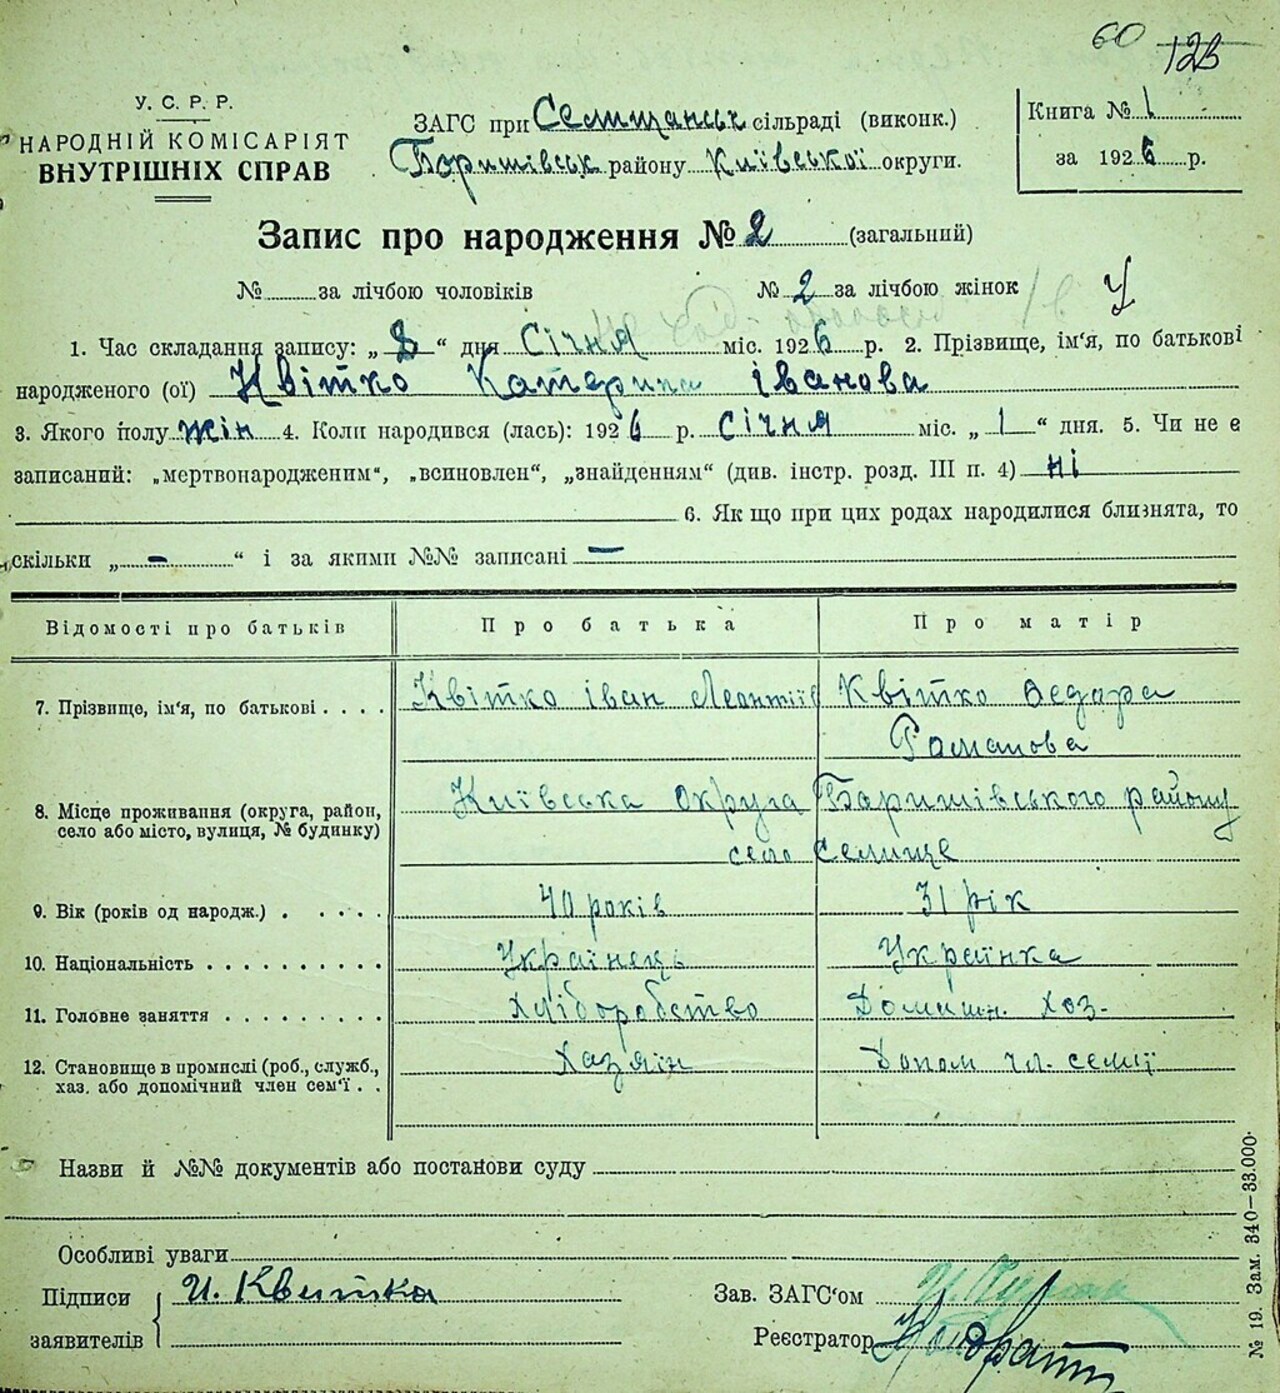 60 123
У. С. Р. Р.
НАРОДНІЙ КОМІСАРІЯТ
ВНУТРІШНІХ СПРАВ
ЗАГС при Селищанськ сільраді (виконк.)
Баришівськ району Київської округи.
Книга № 1
за 1926 р.
Запис про народження № 2 (загальний)
№ за лічбою чоловіків № 2 за лічбою жінок У
1. Час складання запису: „8“ дня Січня міс. 1926 р. 2. Прізвище, ім'я, по батькові
народженого (ої) Квітко Катерина Іванова
3. Якого полу жін 4. Коли народився (лась): 1926 р. Січня міс. „1“ дня. 5. Чи не є
записаний: „мертвонародженим“, „всиновлен“, „знайденням“ (див. інстр. розд. III п. 4) ні
6. Як що при цих родах народилися близнята, то
скільки „ – “ і за якими №№ записані –
Відомості про батьків Про батька Про матір
7. Прізвище, ім'я, по батькові . . . . Квітко Іван Леонтіїв Квітко Федора
Раманова
8. Місце проживання (округа, район, село або місто, вулиця, № будинку) Київська округа Баришівського району
село Селище
9. Вік (років од народж.) . . . . . 40 років 31 рік
10. Національність . . . . . . . . . . Українець Українка
11. Головне заняття . . . . . . . . . Хліборобство Домашн. хоз.
12. Становище в промислі (роб., служб., хаз. або допомічний член сем'ї . . Хазяїн Допом чл. семї
Назви й №№ документів або постанови суду
Особливі уваги
Підписи заявителів И. Квитка
Зав. ЗАГС'ом
Реєстратор
№ 19. Зам. 340—33.000.